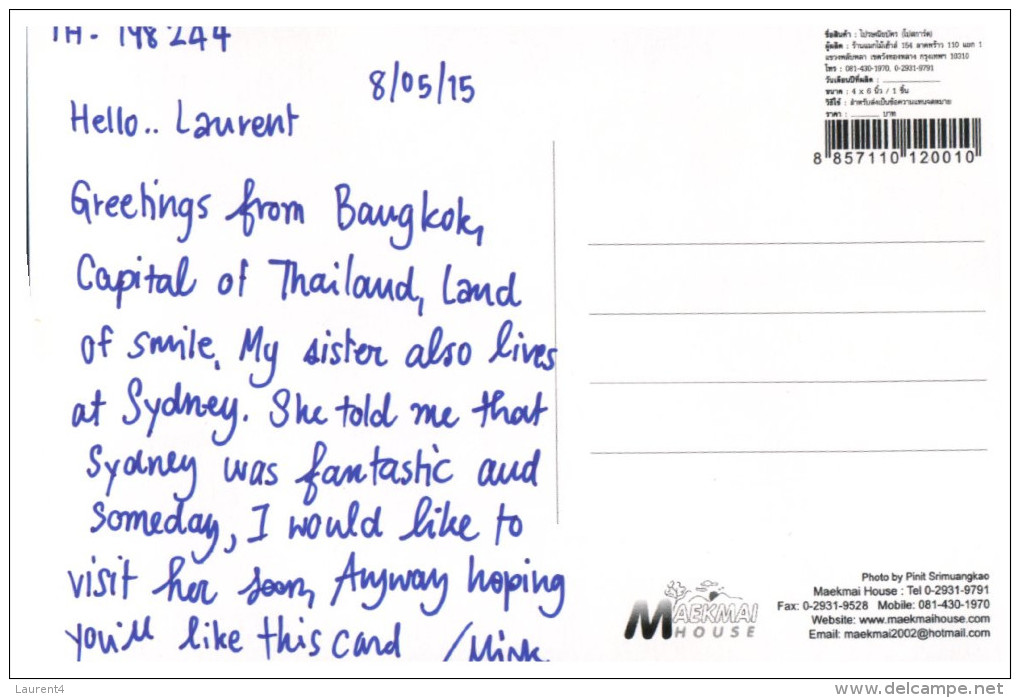 TH - 198244
8/05/15
Hello.. Laurent
Greetings from Bangkok,
Capital of Thailand, Land
of smile. My sister also lives
at Sydney. She told me that
Sydney was fantastic and
someday, I would like to
visit her soon, Anyway hoping
you'll like this card /Mink
ชื่อสินค้า : ไปรษณียบัตร (โปสการ์ด)
ผู้ผลิต : ร้านแมกไม้เฮ้าส์ 154 ลาดพร้าว 110 แยก 1
แขวงพลับพลา เขตวังทองหลาง กรุงเทพฯ 10310
โทร : 081-430-1970, 0-2931-9791
วันเดือนปีที่ผลิต :
ขนาด : 4 x 6 นิ้ว / 1 ชิ้น
วิธีใช้ : สำหรับส่งเป็นข้อความแทนจดหมาย
ราคา : ______ บาท
8 857110 120010
MAEKMAI
HOUSE
Photo by Pinit Srimuangkao
Maekmai House : Tel 0-2931-9791
Fax: 0-2931-9528 Mobile: 081-430-1970
Website: www.maekmaihouse.com
Email: maekmai2002@hotmail.com
Laurent4
delcampe.net